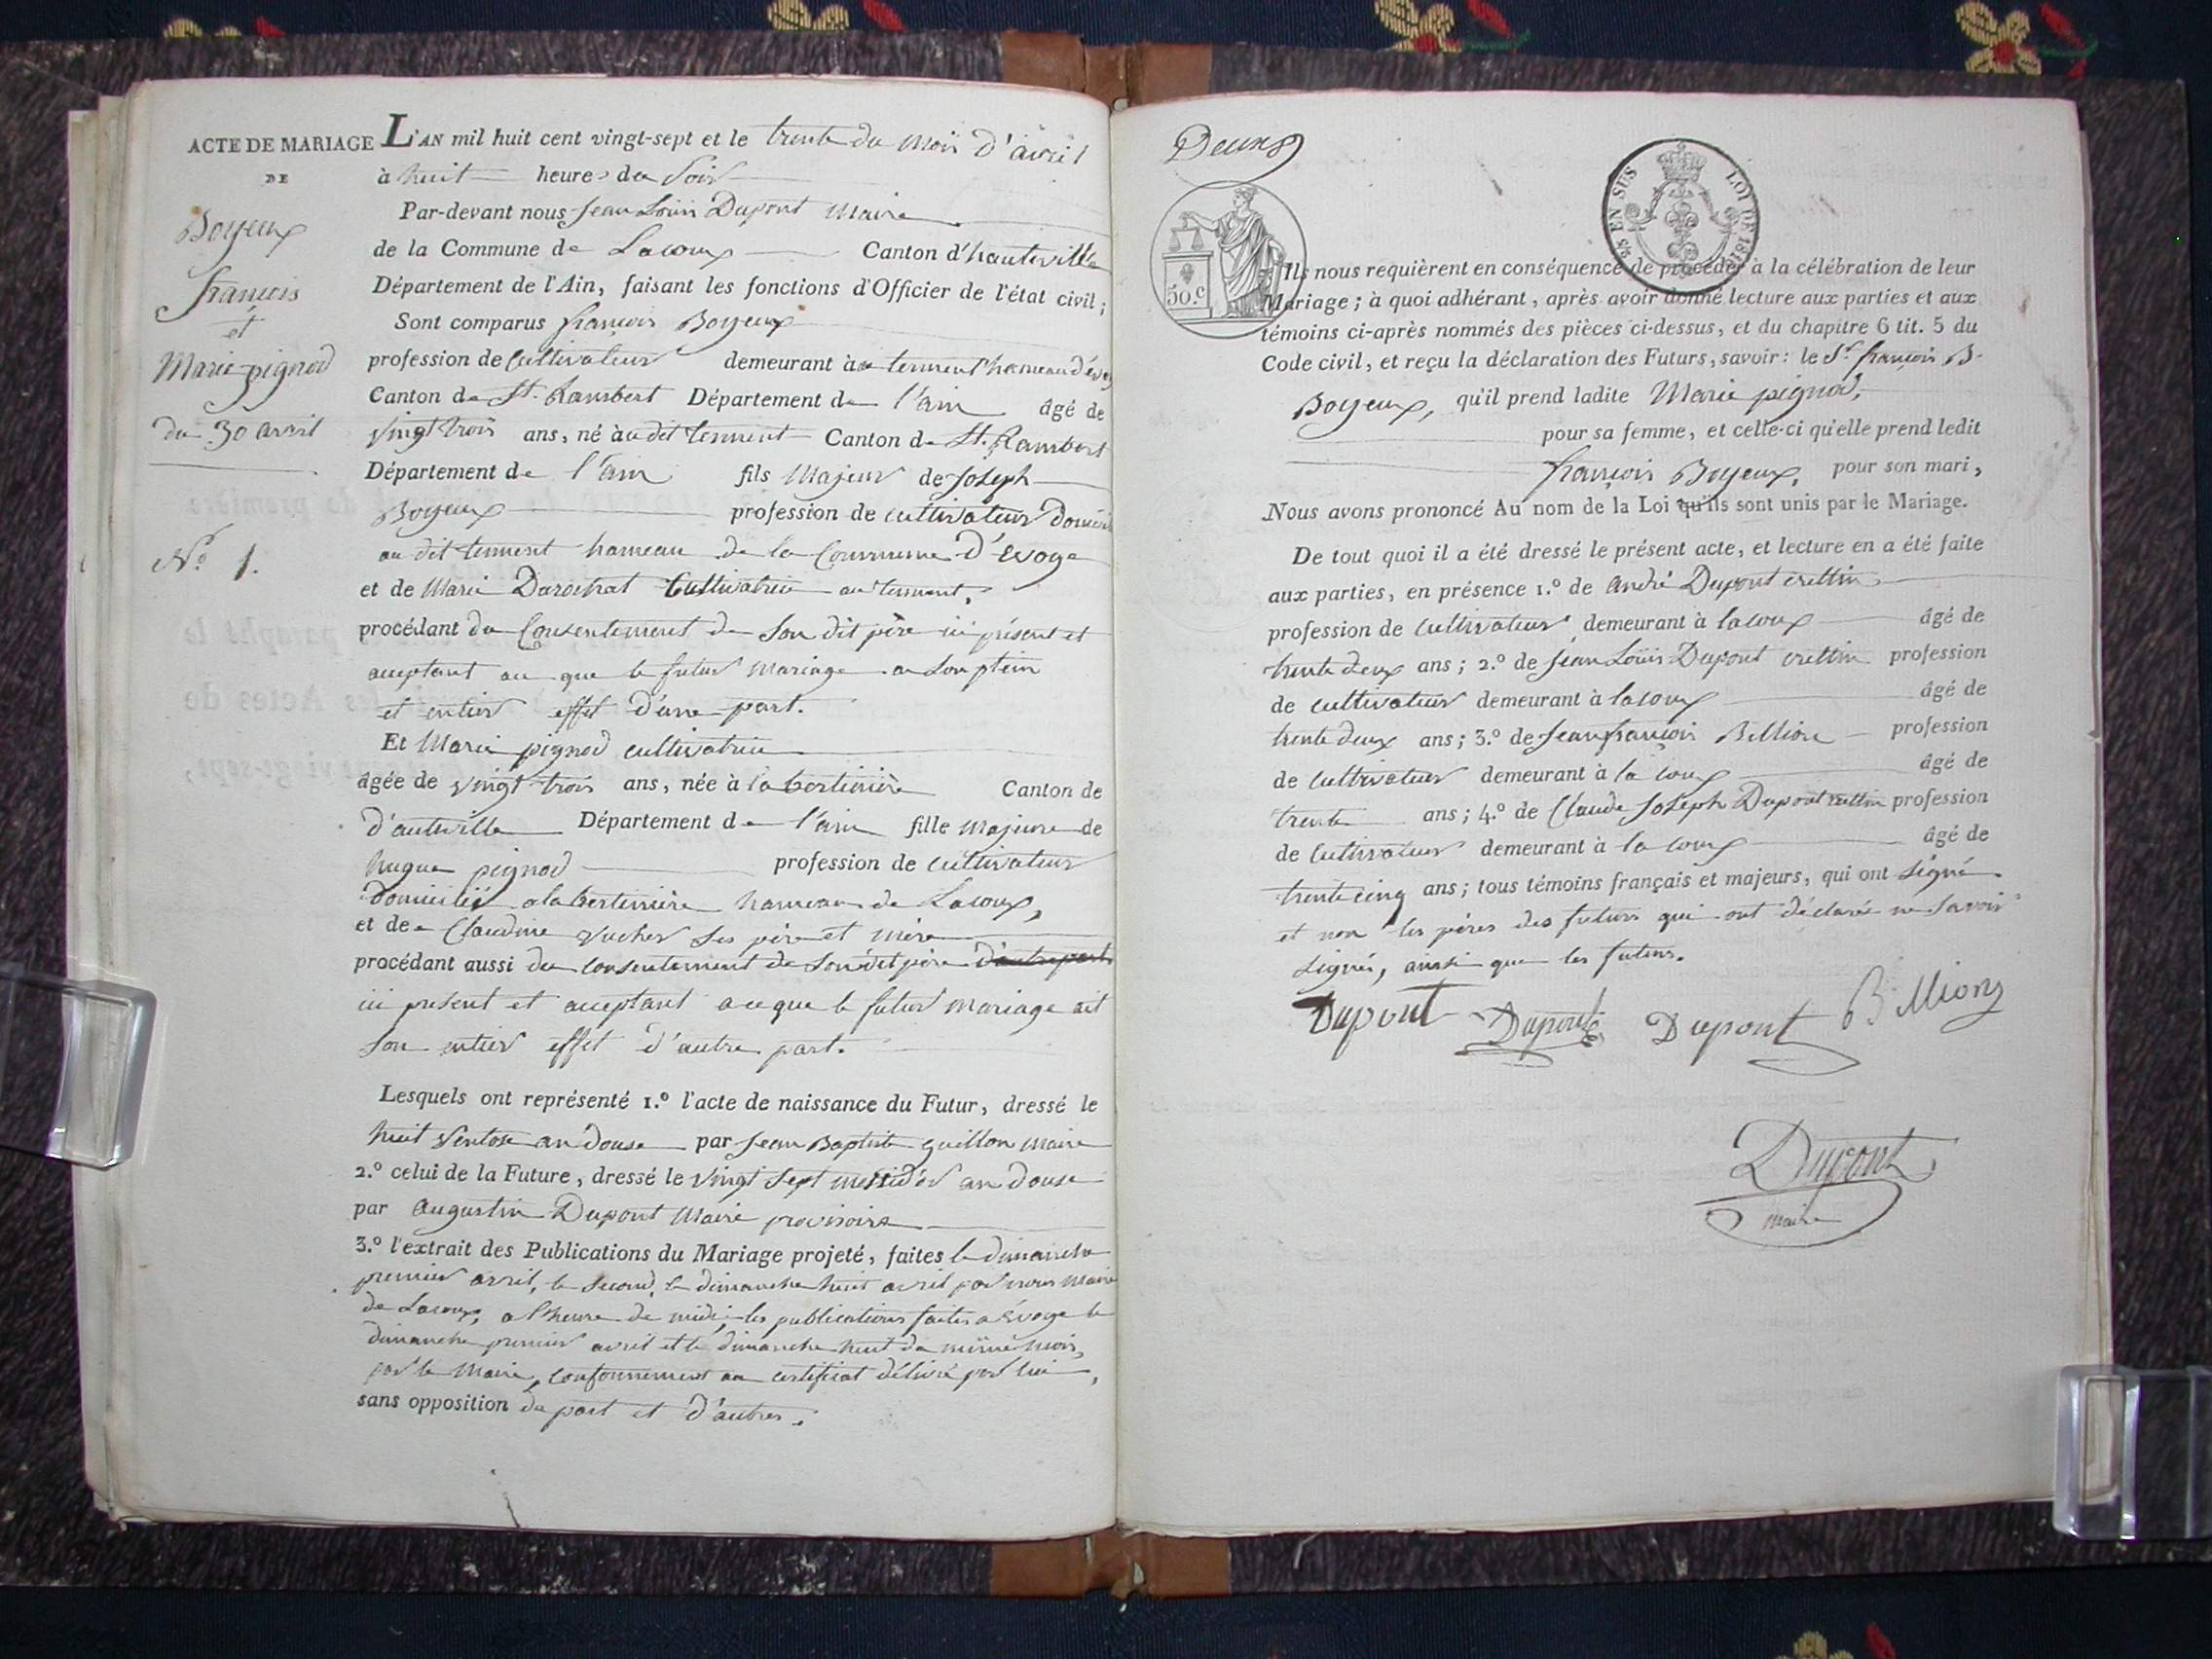 ACTE DE MARIAGE
DE
Boyeux
françois
et
Marie pignod
du 30 avril
N.º 1.
L'AN mil huit cent vingt-sept et le trente du Mois d'avril
à huit heures du soir
Par-devant nous Jean Louis Dupont Maire
de la Commune de Lacoux Canton d'hauteville
Département de l'Ain, faisant les fonctions d'Officier de l'état civil ;
Sont comparus françois Boyeux
profession de Cultivateur demeurant à au tenment hameau d'évo
Canton de St. Rambert Département de l'ain âgé de
vingt trois ans, né au dit tenment Canton de St. Rambert
Département de l'ain fils Majeur de Joseph
Boyeux profession de cultivateur
au dit tenment hameau de la Commune d'Evoge
et de Marie Darochat Cultivatrice au tenment,
procédant du Consentement de Son dit père ici présent et
acceptant ace que le futur Mariage a Son plein
et entier effet d'une part.
Et Marie pignod cultivatrice
âgée de vingt trois ans, née à la bertinière Canton de
d'auteville Département de l'ain fille Majeure de
hugue pignod profession de cultivateur
domicilié a la bertinière hameau de Lacoux,
et de Claudine Vucher ses père et mère
procédant aussi du consentement de Son dit père d'autre part
ici présent et acceptant a ce que le futur Mariage ait
Son entier effet d'autre part.
Lesquels ont représenté 1.º l'acte de naissance du Futur, dressé le
huit Ventose an douse par Jean Baptiste guillon Maire
2.º celui de la Future, dressé le vingt sept messidor an douse
par Augustin Dupont Maire provisoire
3.º l'extrait des Publications du Mariage projeté, faites le dimanche
premier avril, le second, le dimanche huit avril par nous Maire
de Lacoux, a l'heure de midi, les publications faites a Evoge le
dimanche premier avril et le dimanche huit du même mois,
par le Maire, conformement au certificat délivré par lui,
sans opposition de part et d'autres.
Deux
50.C
EN SUS LOI DE 1816
Ils nous requièrent en conséquence de procéder à la célébration de leur
Mariage ; à quoi adhérant, après avoir donné lecture aux parties et aux
témoins ci-après nommés des pièces ci-dessus, et du chapitre 6 tit. 5 du
Code civil, et reçu la déclaration des Futurs, savoir : le Sr. françois B-
Boyeux, qu'il prend ladite Marie pignod,
pour sa femme, et celle-ci qu'elle prend ledit
françois Boyeux, pour son mari,
Nous avons prononcé Au nom de la Loi qu'ils sont unis par le Mariage.
De tout quoi il a été dressé le présent acte, et lecture en a été faite
aux parties, en présence 1.º de André Dupont crettin
profession de Cultivateur demeurant à lacoux âgé de
trente deux ans ; 2.º de Jean Louis Dupont crettin profession
de cultivateur demeurant à lacoux âgé de
trente deux ans ; 3.º de Jean françois Billion profession
de Cultivateur demeurant à la coux âgé de
trente ans ; 4.º de Claude Joseph Dupont crettin profession
de Cultivateur demeurant à la coux âgé de
trente cinq ans ; tous témoins français et majeurs, qui ont Signé
et non les pères des futurs qui ont déclaré ne Savoir
signés, ainsi que les futurs.
Dupont Dupont Dupont Billion
Dupont
maire